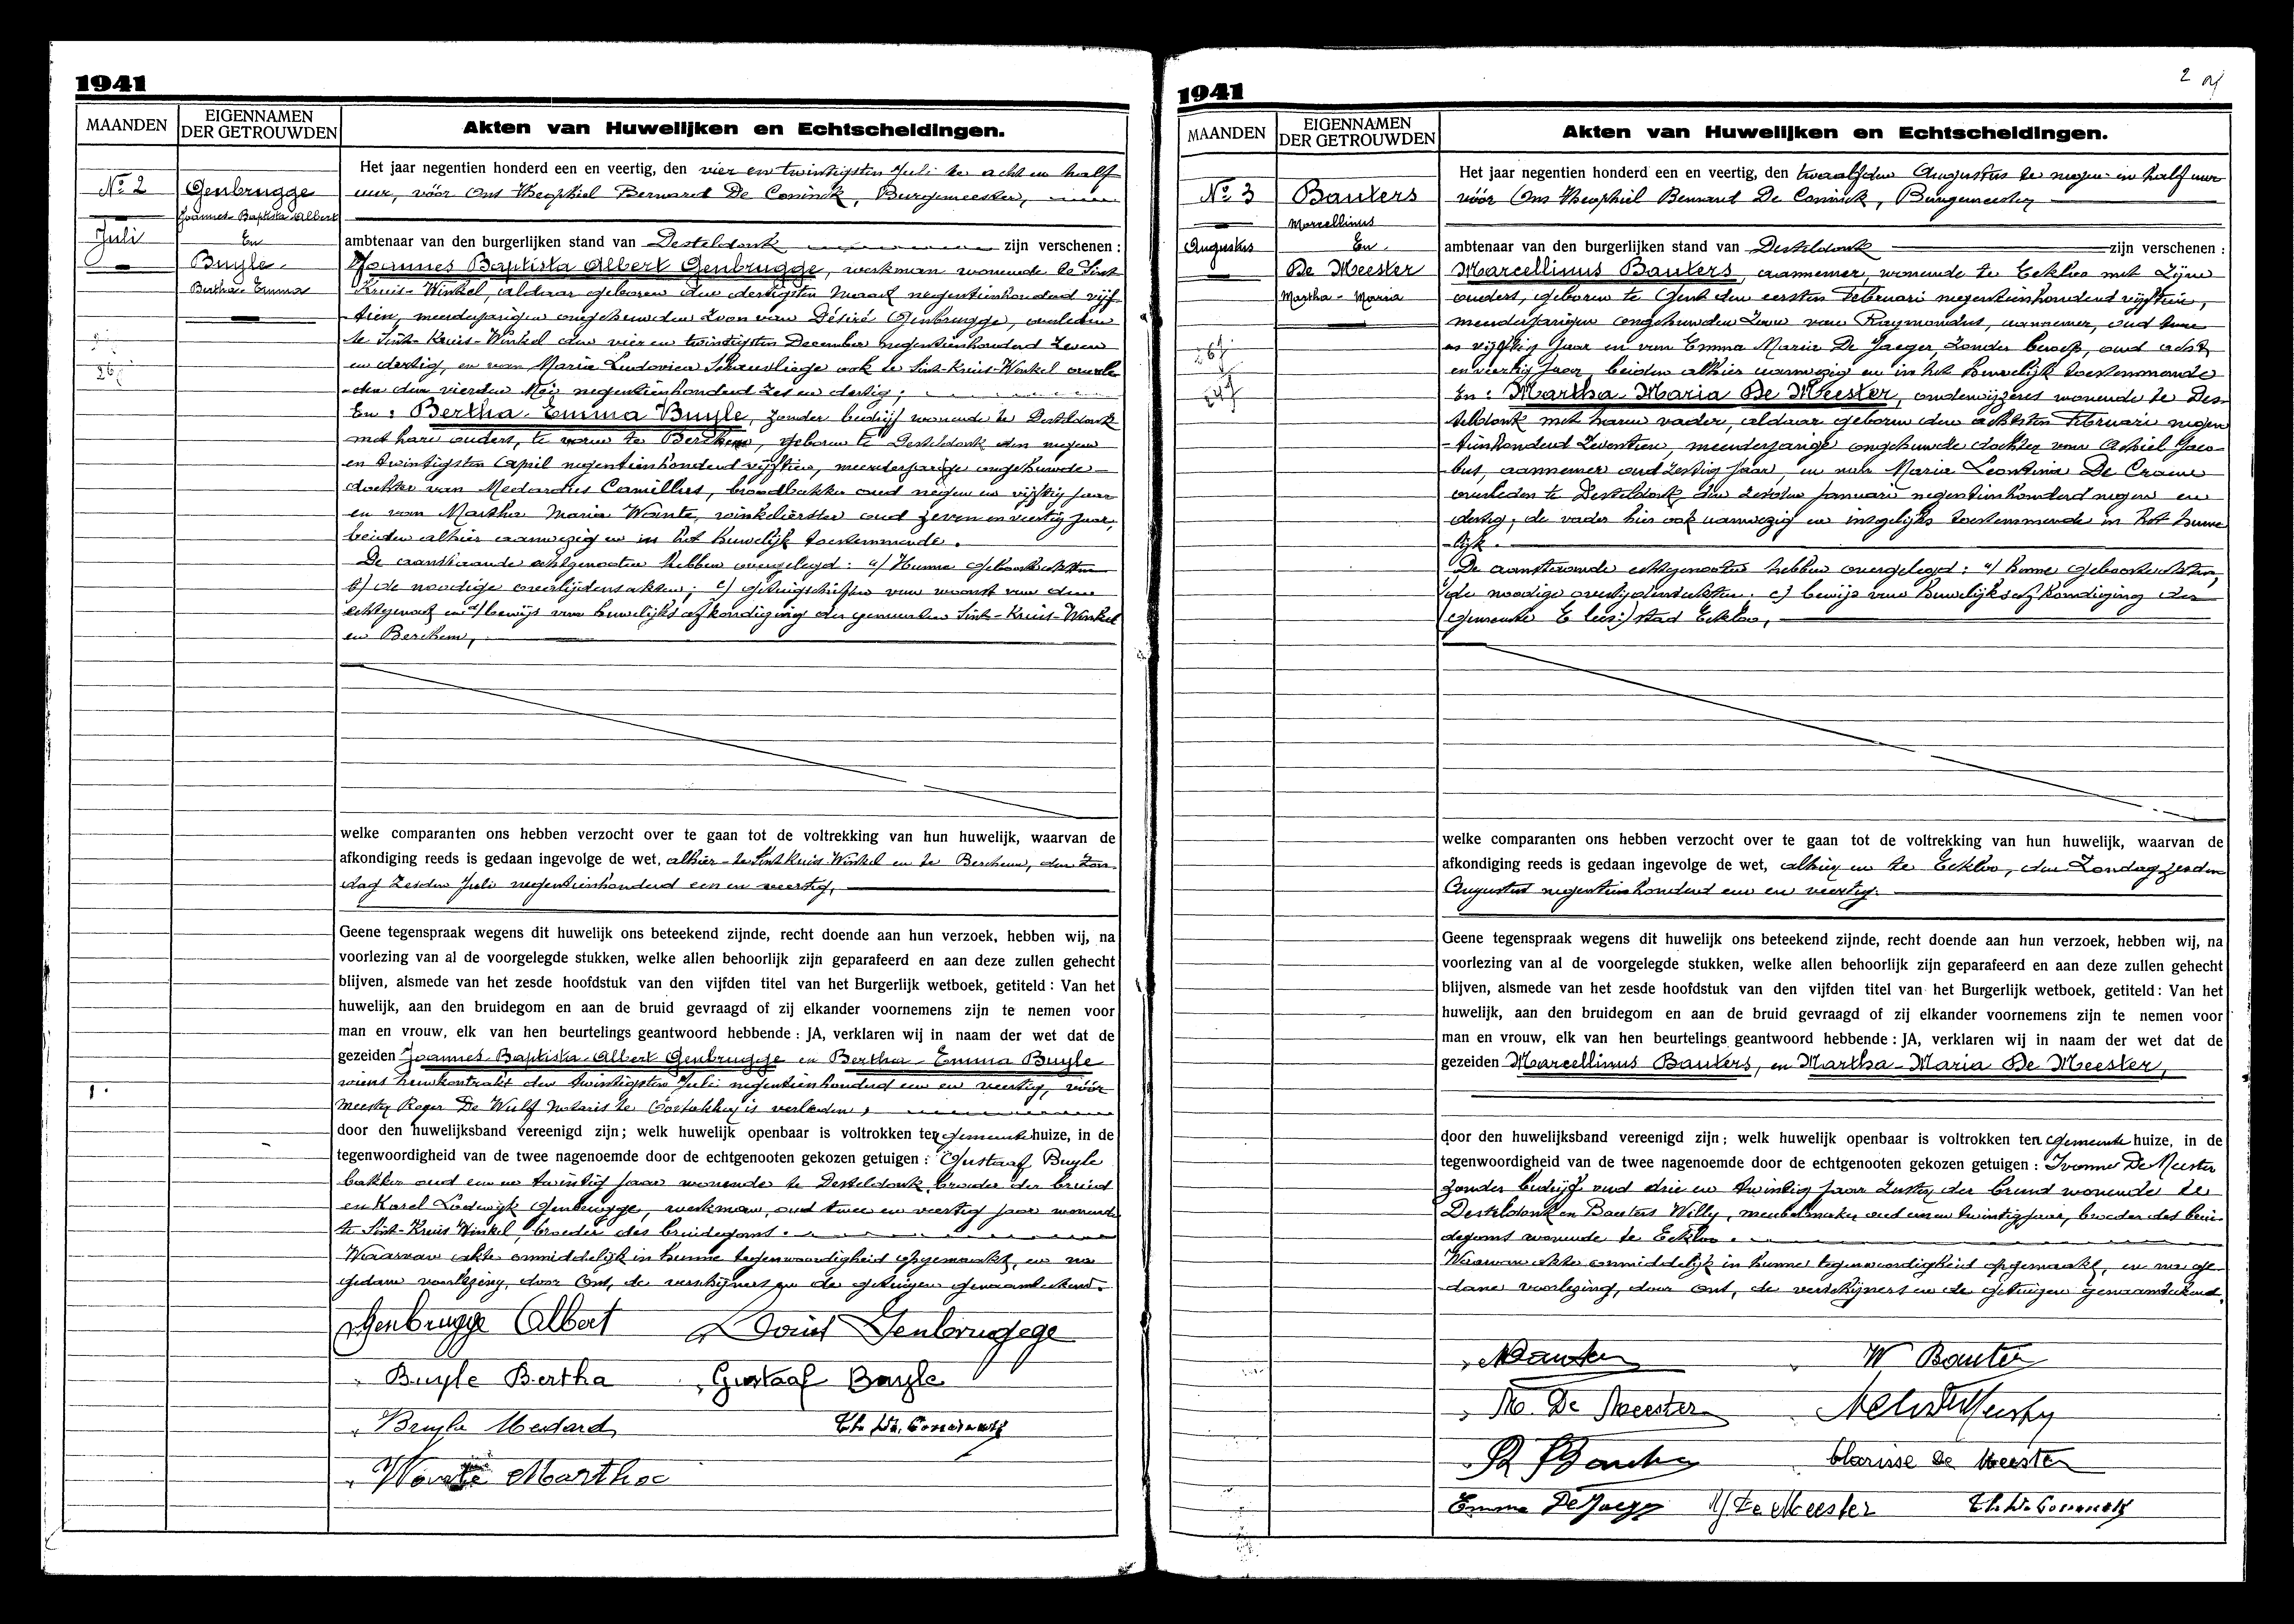 1941
MAANDEN
EIGENNAMEN
DER GETROUWDEN
Akten van Huwelijken en Echtscheidingen.
No 2
Juli
Genbrugge
Joannes-Baptista Albert
En
Buyle
Bertha-Emma
Het jaar negentien honderd een en veertig, den vier en twintigsten Juli te acht en half
uur, vóór Ons Theophiel Bernard De Coninck, Burgemeester,
ambtenaar van den burgerlijken stand van Desteldonk zijn verschenen :
Joannes Baptista Albert Genbrugge, werkman wonende te Sint
Kruis-Winkel, aldaar geboren den dertigsten Maart negentienhonderd vijf
tien, meerderjarigen ongehuwden zoon van Désiré Genbrugge, overleden
te Sint-Kruis-Winkel den vier en twintigsten December negentienhonderd zeven
en dertig, en van Maria Ludovica ook te Sint-Kruis-Winkel overle
den den vierden Mei negentienhonderd zes en dertig;
En : Bertha-Emma Buyle, zonder bedrijf wonende te Desteldonk
met hare ouders, te voren te Berchem, geboren te Desteldonk den negen
en twintigsten April negentienhonderd vijftien, meerderjarige ongehuwde
dochter van Medardus Camillus, broodbakker oud negen en vijftig jaar
en van Martha Maria Wante, winkelierster oud zeven en veertig jaar,
beiden alhier aanwezig en in het huwelijk toestemmende.
De aanstaande echtgenooten hebben overgelegd : a/ Hunne geboorteakten
b/ de noodige overlijdensakten; c/ getuigschriften van woonst van den
echtgenoot en d/ bewijs van huwelijksafkondiging der gemeenten Sint-Kruis-Winkel
en Berchem,
welke comparanten ons hebben verzocht over te gaan tot de voltrekking van hun huwelijk, waarvan de
afkondiging reeds is gedaan ingevolge de wet, alhier te Sint Kruis Winkel en te Berchem, den Zon-
dag zesden Juli negentienhonderd een en veertig,
Geene tegenspraak wegens dit huwelijk ons beteekend zijnde, recht doende aan hun verzoek, hebben wij, na
voorlezing van al de voorgelegde stukken, welke allen behoorlijk zijn geparafeerd en aan deze zullen gehecht
blijven, alsmede van het zesde hoofdstuk van den vijfden titel van het Burgerlijk wetboek, getiteld : Van het
huwelijk, aan den bruidegom en aan de bruid gevraagd of zij elkander voornemens zijn te nemen voor
man en vrouw, elk van hen beurtelings geantwoord hebbende : JA, verklaren wij in naam der wet dat de
gezeiden Joannes-Baptista-Albert Genbrugge en Bertha-Emma Buyle
wiens huwkontrakt den twintigsten Juli negentienhonderd een en veertig, vóór
meester Roger De Wulf notaris te Oostakker is verleden,
door den huwelijksband vereenigd zijn; welk huwelijk openbaar is voltrokken ten gemeentehuize, in de
tegenwoordigheid van de twee nagenoemde door de echtgenooten gekozen getuigen : Gustaaf Buyle
bakker oud een en twintig jaar wonende te Desteldonk, broeder der bruid
en Karel Lodewijk Genbrugge, werkman, oud twee en veertig jaar wonende
te Sint-Kruis Winkel, broeder des bruidegoms.
Waarvan akte onmiddelijk in hunne tegenwoordigheid opgemaakt, en na
gedane voorlezing, door Ons, de verschijners en de getuigen genaamteekend.
Genbrugge Albert Louis Genbrugge
Buyle Bertha Gustaaf Buyle
Buyle Medard Th. De Coninck
Wante Martha
1941
2
MAANDEN
EIGENNAMEN
DER GETROUWDEN
Akten van Huwelijken en Echtscheidingen.
No 3
Augustus
Bauters
Marcellinus
En
De Meester
Martha-Maria
Het jaar negentien honderd een en veertig, den twaalfden Augustus te negen en half uur
vóór Ons Theophiel Bernard De Coninck, Burgemeester
ambtenaar van den burgerlijken stand van Desteldonk zijn verschenen :
Marcellinus Bauters, aannemer, wonende te Eekloo met zijne
ouders, geboren te Gent den eersten Februari negentienhonderd vijftien,
meerderjarigen ongehuwden zoon van Raymondus, aannemer, oud twee
en vijftig jaar en van Emma Maria De Jaeger, zonder beroep, oud acht
en veertig jaar, beiden alhier aanwezig en in het huwelijk toestemmende
En : Martha-Maria De Meester, onderwijzeres wonende te Des-
teldonk met haren vader, aldaar geboren den achtsten Februari negen
tienhonderd zeventien, meerderjarige ongehuwde dochter van Achiel Jaco
bus, aannemer oud zestig jaar, en van Maria Leontina De Craene
overleden te Desteldonk den zesden Januari negentienhonderd negen en
dertig, de vader hier ook aanwezig en insgelijks toestemmende in het huwe
lijk.
De aanstaande echtgenooten hebben overgelegd : a/ hunne geboorteakten,
b/ de noodige overlijdensakten. c/ bewijs van huwelijksafkondiging der
gemeente E lees:) stad Eekloo,
welke comparanten ons hebben verzocht over te gaan tot de voltrekking van hun huwelijk, waarvan de
afkondiging reeds is gedaan ingevolge de wet, alhier en te Eekloo, den Zondag
Augustus negentienhonderd een en veertig.
Geene tegenspraak wegens dit huwelijk ons beteekend zijnde, recht doende aan hun verzoek, hebben wij, na
voorlezing van al de voorgelegde stukken, welke allen behoorlijk zijn geparafeerd en aan deze zullen gehecht
blijven, alsmede van het zesde hoofdstuk van den vijfden titel van het Burgerlijk wetboek, getiteld : Van het
huwelijk, aan den bruidegom en aan de bruid gevraagd of zij elkander voornemens zijn te nemen voor
man en vrouw, elk van hen beurtelings geantwoord hebbende : JA, verklaren wij in naam der wet dat de
gezeiden Marcellinus Bauters, en Martha-Maria De Meester,
door den huwelijksband vereenigd zijn; welk huwelijk openbaar is voltrokken ten gemeente huize, in de
tegenwoordigheid van de twee nagenoemde door de echtgenooten gekozen getuigen : Ivonne De Meester
zonder bedrijf oud drie en twintig jaar zuster der bruid wonende te
Desteldonk en Bauters Willy, meubelmaker oud een en twintig jaar, broeder des brui-
degoms wonende te Eekloo.
Waarvan akte onmiddelijk in hunne tegenwoordigheid opgemaakt, en na ge-
dane voorlezing, door Ons, de verschijners en de getuigen genaamteekend.
MBauters W Bauters
M. De Meester
R Bauters Clarisse De Meester
Emma De Jaeger Y De Meester Th. De Coninck